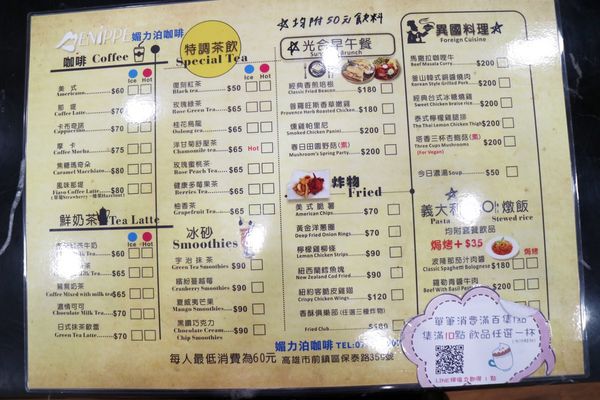 MENIPPE 媚力泊咖啡
咖啡 Coffee
Ice Hot
美式 $60
Americano
那堤 $70
Coffee Latte
卡布奇諾 $70
Cappuccino
摩卡 $75
Coffee Mocha
焦糖瑪奇朵 $80
Caramel Macchiato
風味那堤 $80
Flavo Coffee Latte
鮮奶茶 Tea Latte
Ice Hot
$65
Milk Tea
$65
Milk Tea
鴛鴦奶茶 $65
Coffee Mixed with milk tea
濃情可可 $70
Chocolate
日式抹茶歐蕾 $70
Green Tea Latte
特調茶飲
Special Tea
Ice Hot
復刻紅茶 $50
Black tea
玫瑰綠茶 $65
Rose Green Tea
桂花烏龍 $65
Oolong tea
洋甘菊舒壓茶 $65 Hot
Chamomile tea
玫瑰蜜桃茶 $65
Rose Peach Tea
健康多莓果茶 $65
Berries Tea
柚香茶 $65
Grapefruit Tea
冰砂
Smoothies
宇治抹茶 $90
Green Tea Smoothies
繽紛蔓越莓 $90
Cranberry Smoothies
夏威夷芒果 $90
Mango Smoothies
黑鑽巧克力 $90
Chocolate Cream
Chip Smoothies
☆均附50元飲料
光合早午餐
Brunch
經典香煎培根 $180
Classic Fried Beacon
普羅旺斯香草嫩雞 $180
Provence Herb Roasted Chicken
燻雞帕里尼 $200
Smoked Chicken Panini
春日田園野菇(素) $200
Mushroom's Spring Party
炸物
Fried
美式脆薯 $70
American Chips
黃金洋蔥圈 $90
Deep Fried Onion Rings
檸檬雞柳條 $90
Lemon Chicken Strips
紐西蘭鱈魚塊 $90
New Zealand Cod Fried
紐約客脆皮雞翅 $120
Crispy Chicken Wings
香酥俱樂部(任選三種炸物) $180
Fried Club
異國料理
Foreign Cuisine
馬撒拉咖哩牛 $200
Beef Masala Curry
釜山韓式銅盤燒肉 $200
Korean Style Grilled Pork
經典台式冰糖燒雞 $200
Sweet Chicken braise rice
泰式檸檬雞腿排 $200
The Thai Lemon Chicken Thigh
塔香三杯杏鮑菇(素) $200
Three Cups Mushrooms
(For Vegan)
今日濃湯 $50
Soup
義大利 燉飯
Pasta Stewed rice
均附套餐飲品
焗烤+$35
焗烤
波隆那茄汁肉醬 $180
Classic Spaghetti Bolognese
羅勒青醬牛肉
Beef With Basil
單筆消費滿百集1點
集滿10點 飲品任選一杯
媚力泊咖啡 TEL:07
每人最低消費為60元 高雄市前鎮區保泰路359號